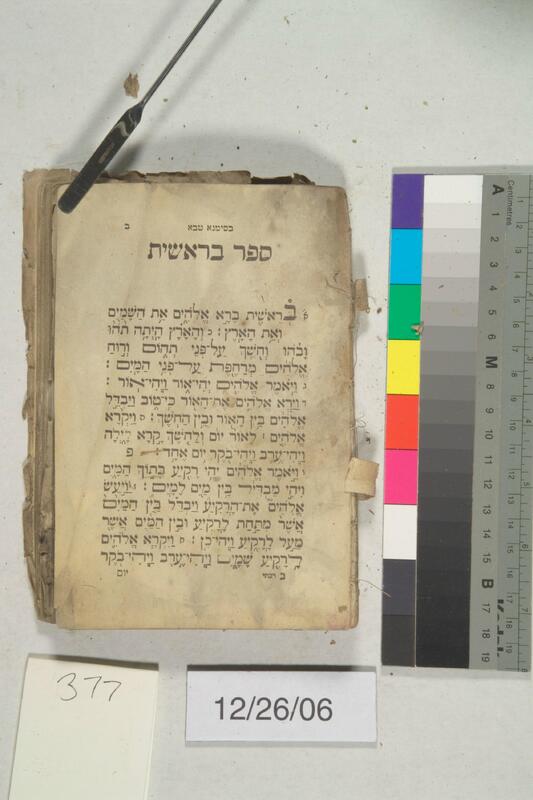 בסיטנא טבא ב
ספר בראשית
בְּרֵאשִׁית בָּרָא אֱלֹהִים אֵת הַשָּׁמַיִם
וְאֵת הָאָרֶץ׃ ב וְהָאָרֶץ הָיְתָה תֹהוּ
וָבֹהוּ וְחֹשֶׁךְ עַל־פְּנֵי תְהוֹם וְרוּחַ
אֱלֹהִים מְרַחֶפֶת עַל־פְּנֵי הַמָּיִם׃
ג וַיֹּאמֶר אֱלֹהִים יְהִי־אוֹר וַיְהִי־אוֹר׃
ד וַיַּרְא אֱלֹהִים אֶת־הָאוֹר כִּי־טוֹב וַיַּבְדֵּל
אֱלֹהִים בֵּין הָאוֹר וּבֵין הַחֹשֶׁךְ׃ ה וַיִּקְרָא
אֱלֹהִים לָאוֹר יוֹם וְלַחֹשֶׁךְ קָרָא לָיְלָה
וַיְהִי־עֶרֶב וַיְהִי־בֹקֶר יוֹם אֶחָד׃ פ
ו וַיֹּאמֶר אֱלֹהִים יְהִי רָקִיעַ בְּתוֹךְ הַמָּיִם
וִיהִי מַבְדִּיל בֵּין מַיִם לָמָיִם׃ ז וַיַּעַשׂ
אֱלֹהִים אֶת־הָרָקִיעַ וַיַּבְדֵּל בֵּין הַמַּיִם
אֲשֶׁר מִתַּחַת לָרָקִיעַ וּבֵין הַמַּיִם אֲשֶׁר
מֵעַל לָרָקִיעַ וַיְהִי־כֵן׃ ח וַיִּקְרָא אֱלֹהִים
לָרָקִיעַ שָׁמָיִם וַיְהִי־עֶרֶב וַיְהִי־בֹקֶר
ב רבתי יום
377
12/26/06
Centimetres
A
1
2
3
4
5
6
M
8
9
10
11
12
13
14
15
B
17
18
19